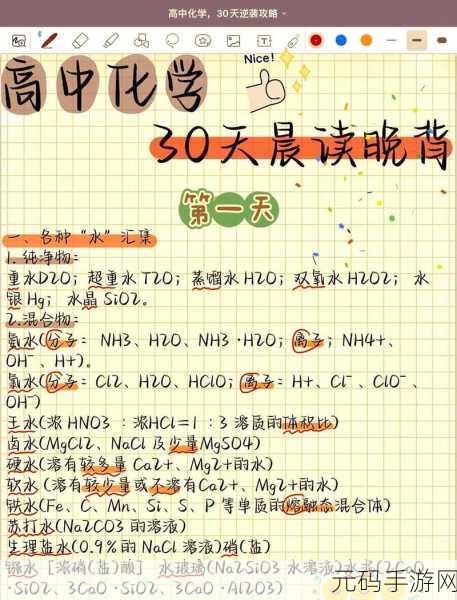 高中化学，30天逆袭攻略
Nice!
高中化学
30天晨读晚背
第一天
一、各种“水”汇集
1.纯净物：
重水D2O；超重水T2O；蒸馏水H2O；双氧水H2O2；水
银Hg；水晶SiO2。
2.混合物：
氨水(分子：NH3、H2O、NH3·H2O；离子；NH4+、
OH⁻、H+)。
氯水(分子：Cl2、H2O、HClO；离子：H+、Cl⁻、ClO⁻、
OH⁻)
王水(浓HNO3：浓HCl=1：3溶质的体积比)
卤水(MgCl2、NaCl及少量MgSO4)
硬水(溶有较多量Ca2+、Mg2+的水)
软水(溶有较少量或不溶有Ca2+、Mg2+的水)
铁水(Fe、C、Mn、Si、S、P等单质的熔融态混合体)
苏打水(Na2CO3的溶液)
生理盐水(0.9%的NaCl溶液)硝(盐)
镪水[浓硝(盐)酸] 水玻璃(Na2SiO3水溶液)水泥(2CaO
·SiO2、3CaO·SiO2、3CaO·Al2O3)
元码手游网